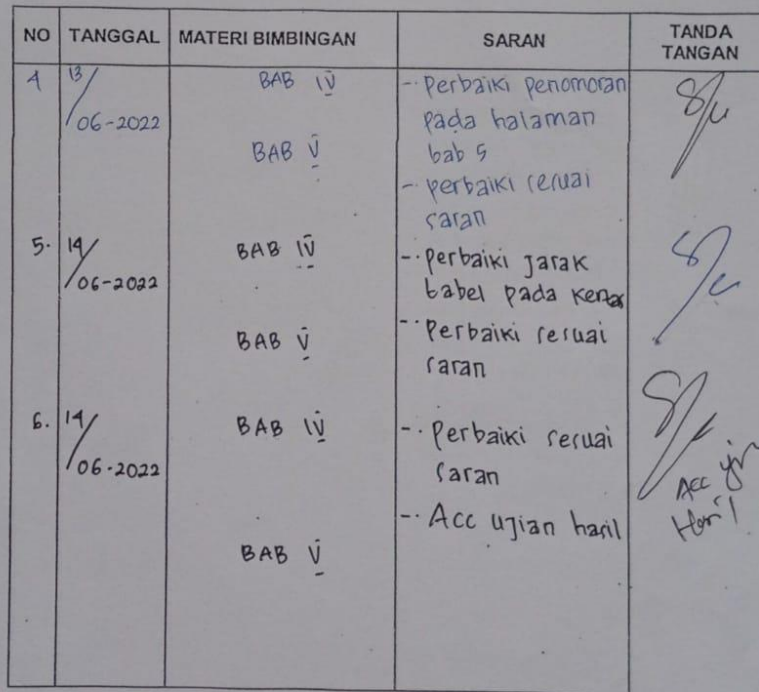 NO TANGGAL MATERI BIMBINGAN SARAN TANDA TANGAN
4 13/06-2022 BAB IV - Perbaiki penomoran
pada halaman
BAB V bab 5
- perbaiki sesuai
saran
5. 14/06-2022 BAB IV - perbaiki jarak
tabel pada
BAB V - Perbaiki sesuai
saran
6. 14/06-2022 BAB IV - Perbaiki sesuai
saran
- Acc ujian hasil
BAB V
Acc
Hasil